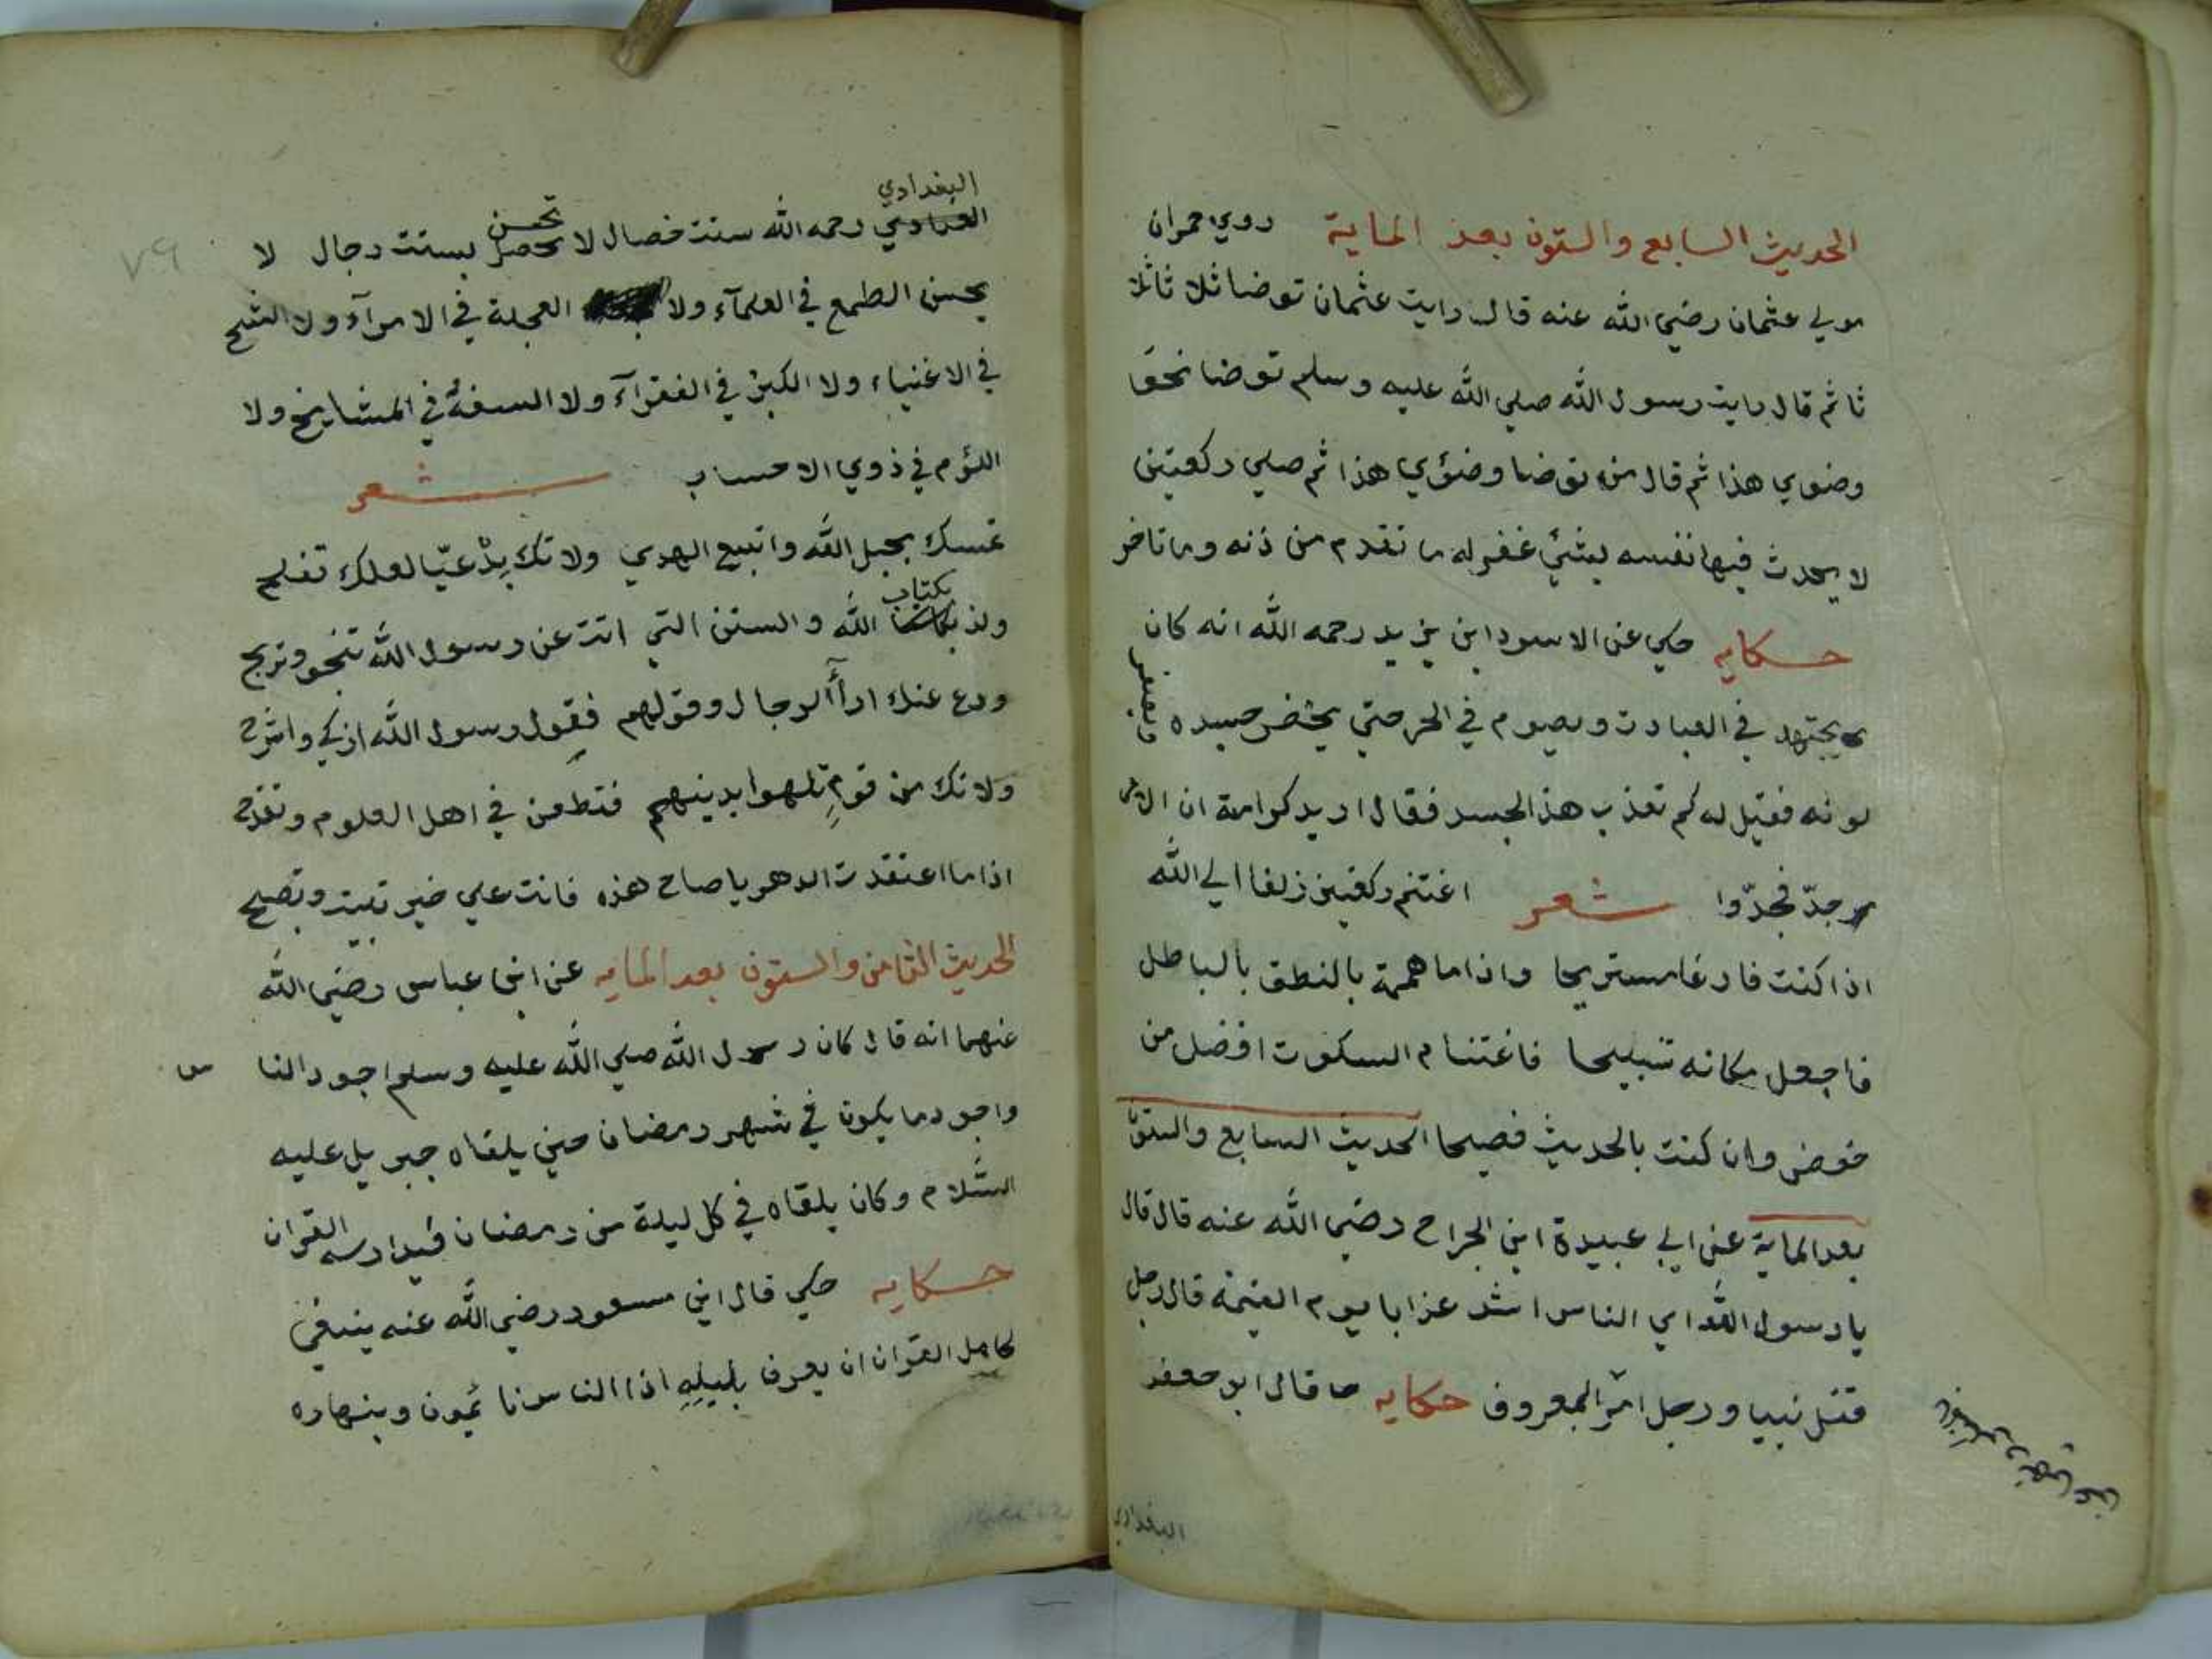 الحديث السابع والستون بعد الماية روي حمران
مولي عثمان رضي الله عنه قال رايت عثمان توضا ثلاثا ثلا
ثا ثم قال رايت رسول الله صلي الله عليه وسلم توضا نحو
وضوي هذا ثم قال من توضا وضؤي هذا ثم صلي ركعتين
لا يحدث فيها نفسه بشئ غفر له ما تقدم من ذنه وما تاخر
حكايه حكي عن الاسود ابن يزيد رحمه الله انه كان
يجتهد في العبادت ويصوم في الحر حتي يخضر جسده ويصفر
لونه فقيل له كم تعذب هذ الجسد فقال اريد كرامته ان الامر
جدّ فجدّوا شعر اغتنم ركعتين زلفا الي الله
اذا كنت فارغا مستريحا واذا ما هممة بالنطق بالباطل
فاجعل مكانه تسبيحا فاغتنام السكوت افضل من
خوض وان كنت بالحديث فصيحا الحديث السابع والستو
بعد الماية عن ابي عبيدة ابن الجراح رضي الله عنه قال قال
يا رسول الله اي الناس اشد عذابا يوم القيمة قال رجل
قتل نبيا ورجل امر المعروف حكايه قال ابو جعفر
البغدادي
البغدادي
رحمه الله ستت خصال لا تحسن بستت رجال لا
يحسن الطمع في العلمآء ولا العجلة في الامرآء ولا الشح
في الاغنياء ولا الكبر في الفقرآء ولا السفه في المشايخ ولا
اللؤم في ذوي الاحساب شعر
تمسك بحبل الله واتبع الهدي ولا تك بدْعيّا لعلك تفلح
ولذ بكتاب الله والسنن التي اتت عن رسول الله تنجو وتربح
ودع عنك ارأ الرجال وقولهم فقول رسول الله ازكي واشرح
ولا تك من قومٍ تلهوا بدينهم فتطعن في اهل العلوم وتقدح
اذا ما اعتقدت الدهر يا صاح هذه فانت علي خير تبيت وتصبح
الحديث الثامن والستون بعد المايه عن ابن عباس رضي الله
عنهما انه قال كان رسول الله صلي الله عليه وسلم اجود النا س
واجود ما يكون في شهر رمضان حين يلقاه جبريل عليه
السّلام وكان يلقاه في كل ليلة من رمضان فيدارسه القران
حكايه حكي قال ابن مسعود رضي الله عنه ينبغي
لحامل القران ان يعرف بليلِهِ اذا الناس نائمون وبنهاره